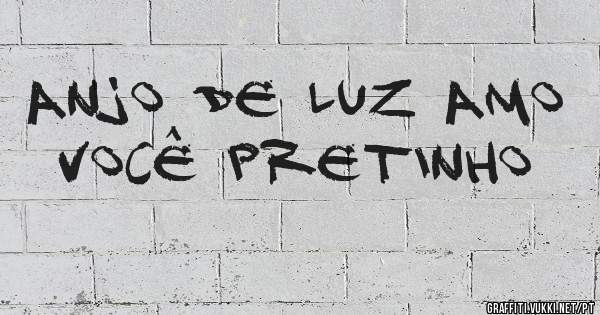 ANJO DE LUZ AMO
VOCÊ PRETINHO
GRAFFITI.VUKKI.NET/PT